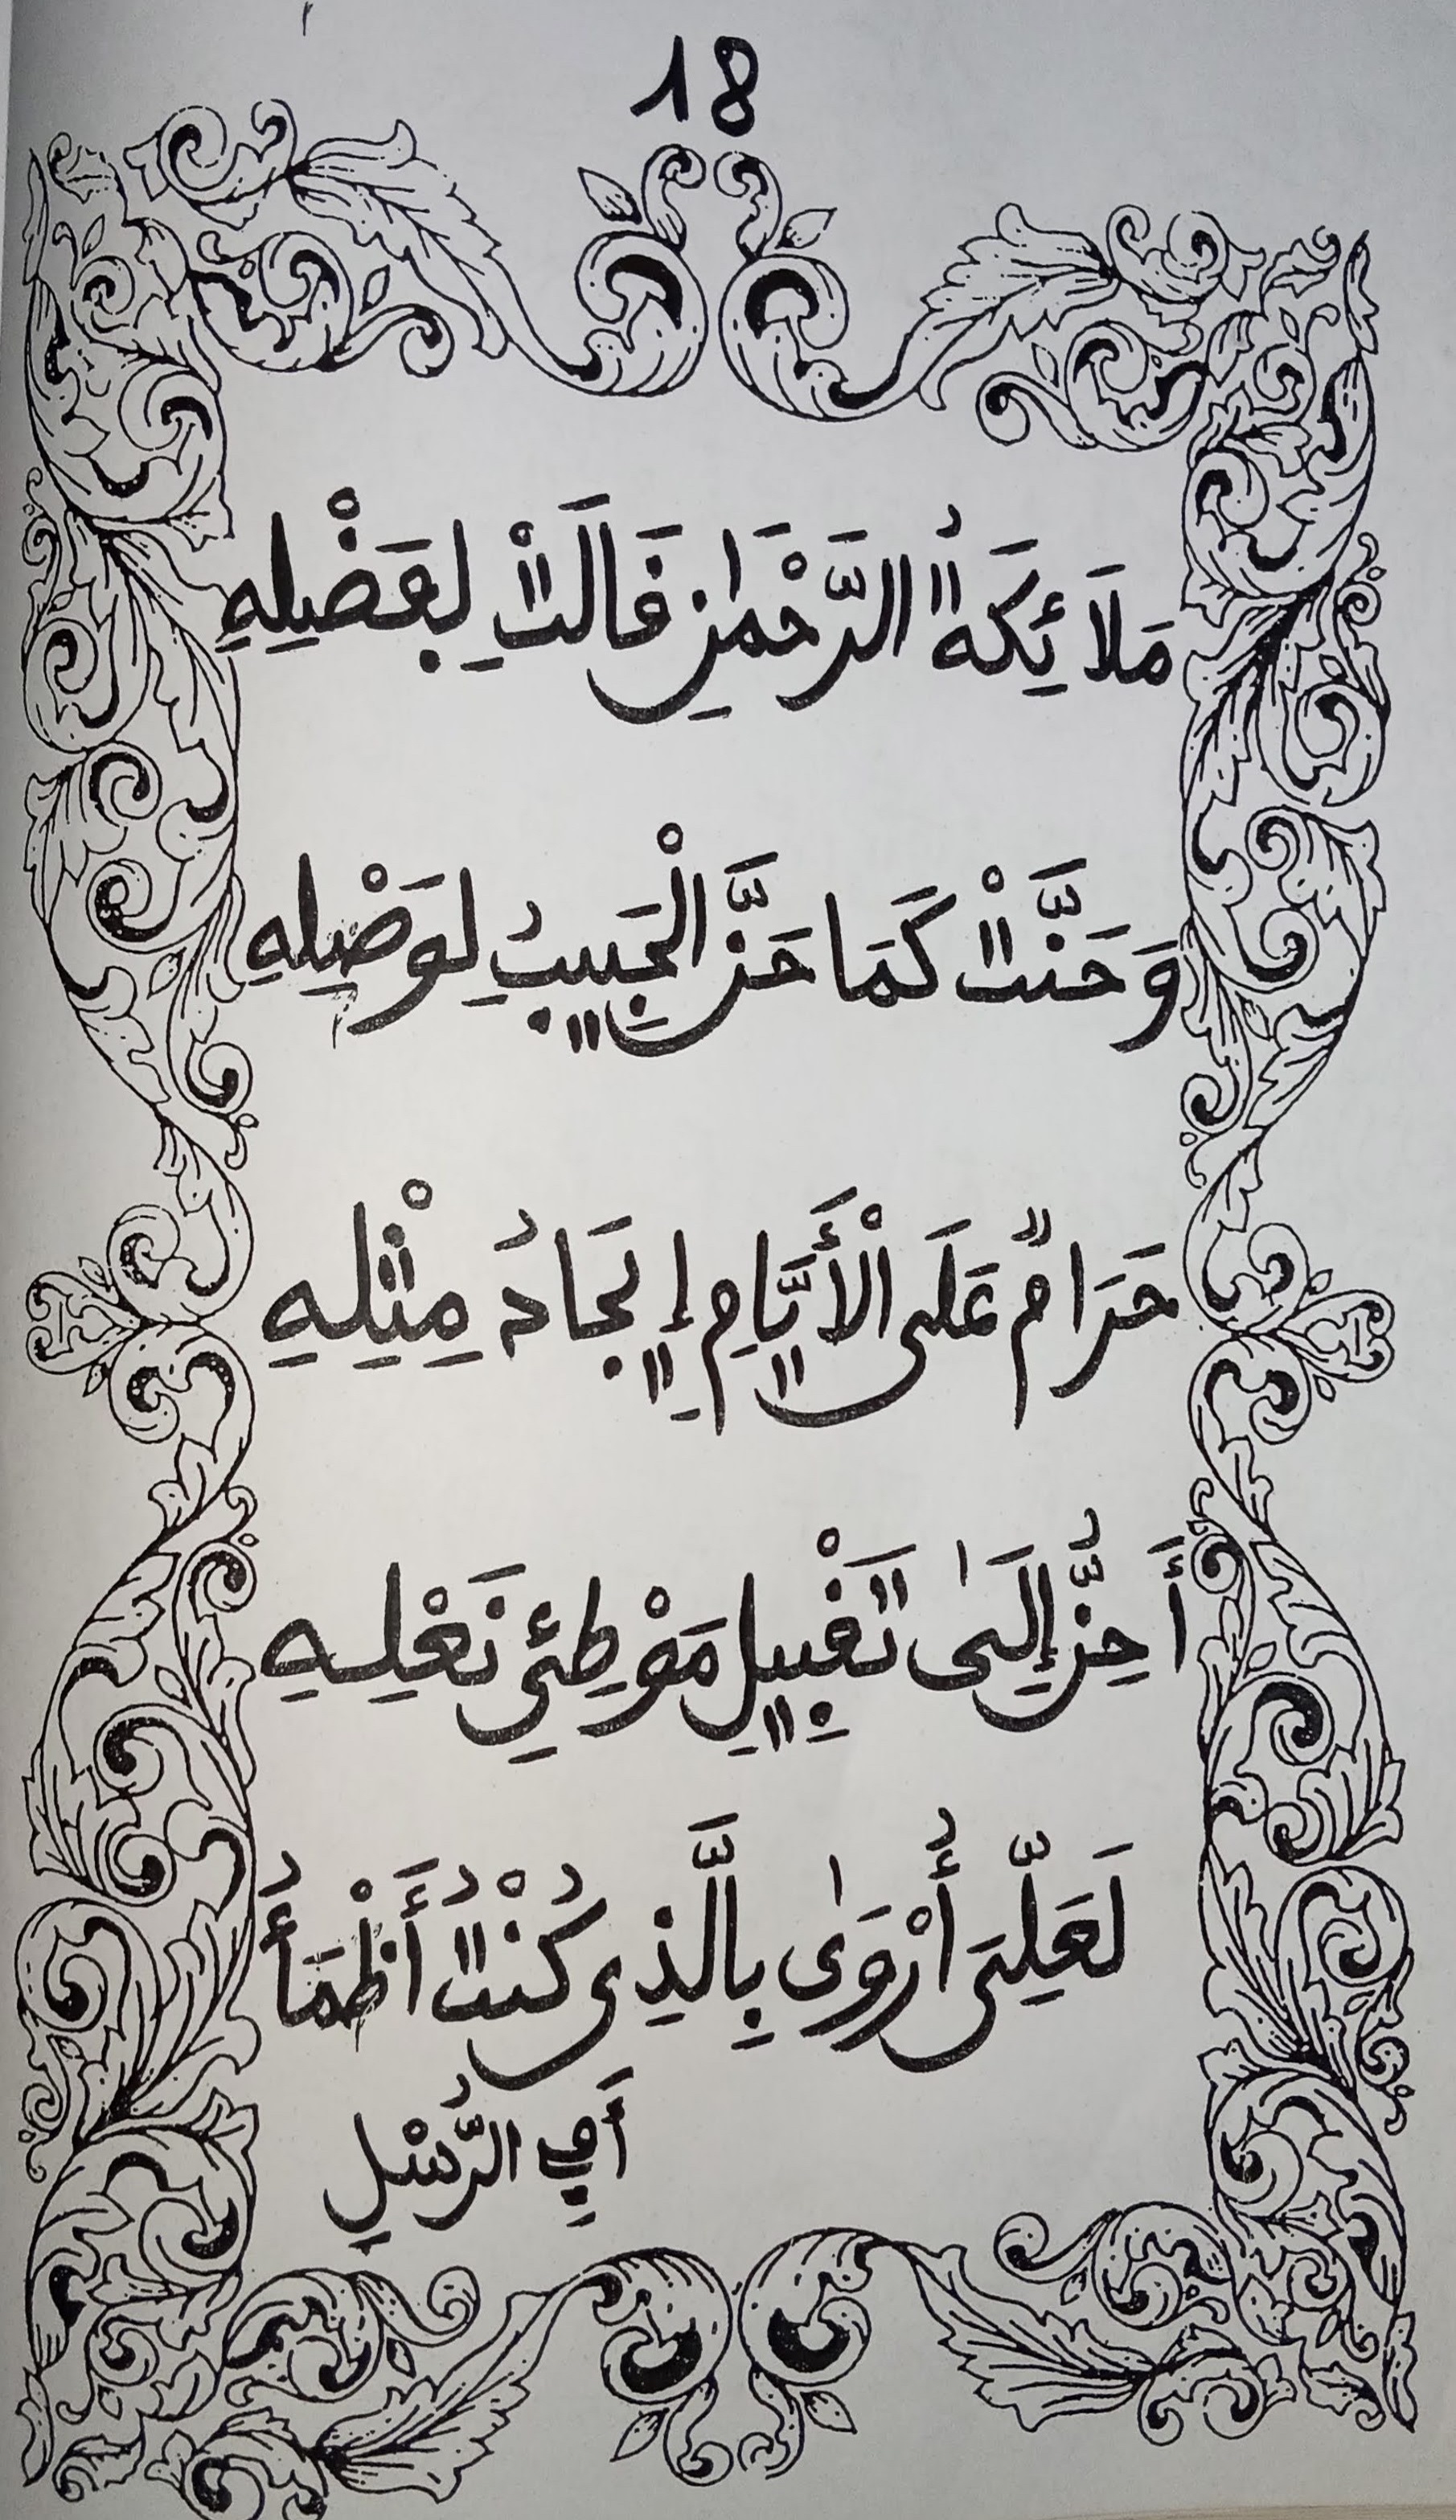 18
مَلَائِكَةُ الرَّحْمٰنِ قَالَتْ لِفَضْلِهِ
وَحَنَّتْ كَمَا حَنَّ الْحَبِيبُ لِوَصْلِهِ
حَرَامٌ عَلَى الْأَيَّامِ إِيجَادُ مِثْلِهِ
أَحِنُّ إِلَىٰ تَقْبِيلِ مَوْطِئِ نَعْلِهِ
لَعَلِّيَ أُرْوَىٰ بِالَّذِي كُنْتُ أَظْمَأُ
أَفِي الرُّسْلِ